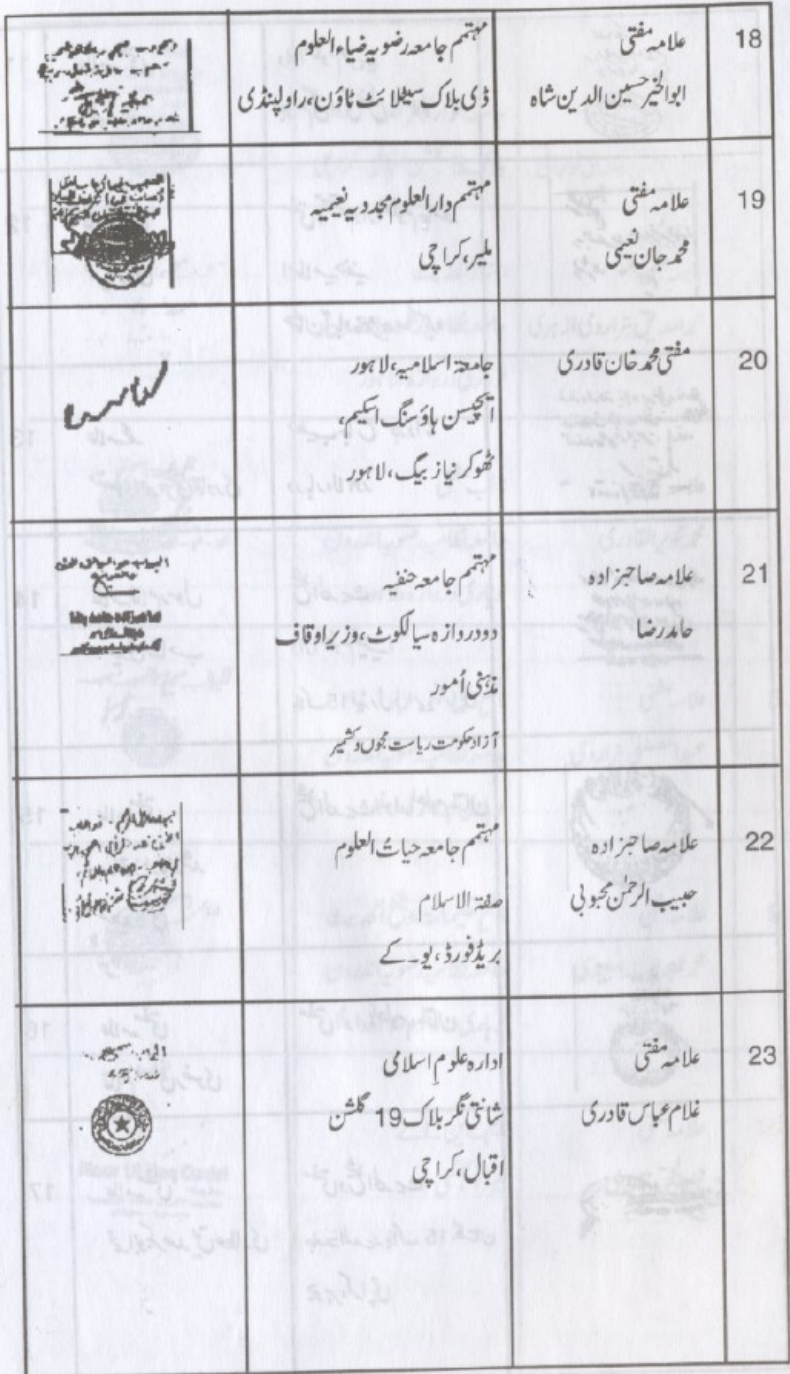 18
علامہ مفتی
ابوالخیر حسین الدین شاہ
مہتمم جامعہ رضویہ ضیاء العلوم
ڈی بلاک سیٹلائٹ ٹاؤن، راولپنڈی
19
علامہ مفتی
محمد جان نعیمی
مہتمم دارالعلوم مجددیہ نعیمیہ
ملیر، کراچی
20
مفتی محمد خان قادری
جامعۃ اسلامیہ، لاہور
ایچیسن ہاؤسنگ اسکیم،
ٹھوکر نیاز بیگ، لاہور
21
علامہ صاحبزادہ
حامد رضا
مہتمم جامعہ حنفیہ
دودروازہ سیالکوٹ، وزیر اوقاف
مذہبی اُمور
آزاد حکومت ریاست جموں و کشمیر
22
علامہ صاحبزادہ
حبیب الرحمٰن محبوبی
مہتمم جامعہ حیاتُ العلوم
صفۃ الاسلام
بریڈفورڈ، یو۔کے
23
علامہ مفتی
غلام عباس قادری
ادارہ علومِ اسلامی
شانتی نگر بلاک 19 گلشن
اقبال، کراچی